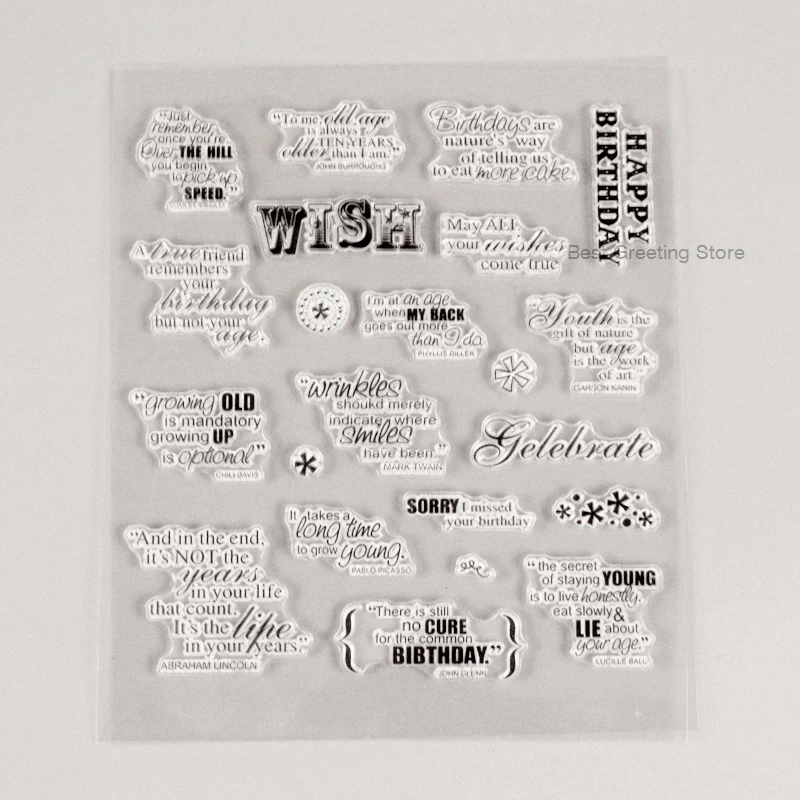 "Just
remember,
once you're
Over THE HILL
you begin
to pick up
SPEED."
"To me, old age
is always
TEN YEARS
older than I am."
JOHN BURROUGHS
Birthdays are
nature's way
of telling us
to eat more cake.
HAPPY
BIRTHDAY
WISH
May ALL
your wishes
come true
Best Greeting Store
A true friend
remembers
your
birthday
but not your
age.
I'm at an age
when MY BACK
goes out more
than I do.
PHYLLIS DILLER
"Youth is the
gift of nature
but age
is the work
of art."
GARSON KANIN
"growing OLD
is mandatory
growing UP
is optional"
CHILI DAVIS
"wrinkles
shoukd merely
indicate where
smiles
have been."
MARK TWAIN
Gelebrate
SORRY I missed
your birthday
It takes a
long time
to grow young.
PABLO PICASSO
"And in the end,
it's NOT the
years
in your life
that count.
It's the life
in your years."
ABRAHAM LINCOLN
"There is still
no CURE
for the common
BIRTHDAY."
JOHN GLENN
"the secret
of staying YOUNG
is to live honestly.
eat slowly &
LIE about
your age."
LUCILLE BALL